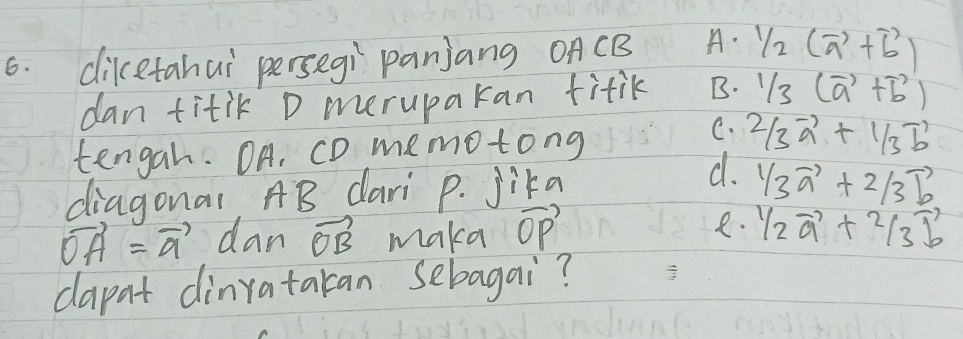 6. diketahui persegi panjang OACB
dan titik D merupakan titik
tengah. OA, CD memotong
diagonal AB dari P. jika
\overrightarrow{OA} = \vec{a} dan \overrightarrow{OB} maka \overrightarrow{OP}
dapat dinyatakan sebagai?
A. 1/2 (\vec{a} + \vec{b})
B. 1/3 (\vec{a} + \vec{b})
C. 2/3 \vec{a} + 1/3 \vec{b}
d. 1/3 \vec{a} + 2/3 \vec{b}
e. 1/2 \vec{a} + 2/3 \vec{b}